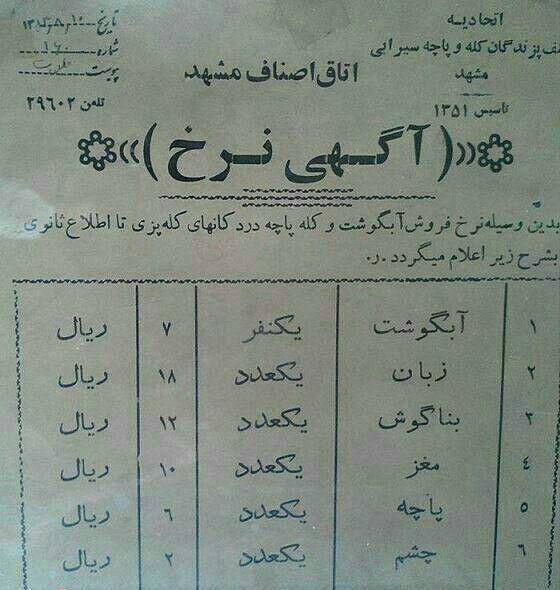 اتحادیه
پزندگان کله و پاچه سیرابی
مشهد
تاسیس ۱۳۵۱
اتاق اصناف مشهد
تاریخ
شماره ۱۶۰
پیوست
تلفن ۲۹۶۰۲
(آگهی نرخ)
بدین وسیله نرخ فروش آبگوشت و کله پاچه در دکانهای کله پزی تا اطلاع ثانوی
بشرح زیر اعلام میگردد.ر.
۱ آبگوشت یکنفر ۷ ریال
۲ زبان یکعدد ۱۸ ریال
۳ بناگوش یکعدد ۱۲ ریال
٤ مغز یکعدد ۱۰ ریال
۵ پاچه یکعدد ۶ ریال
۶ چشم یکعدد ۲ ریال